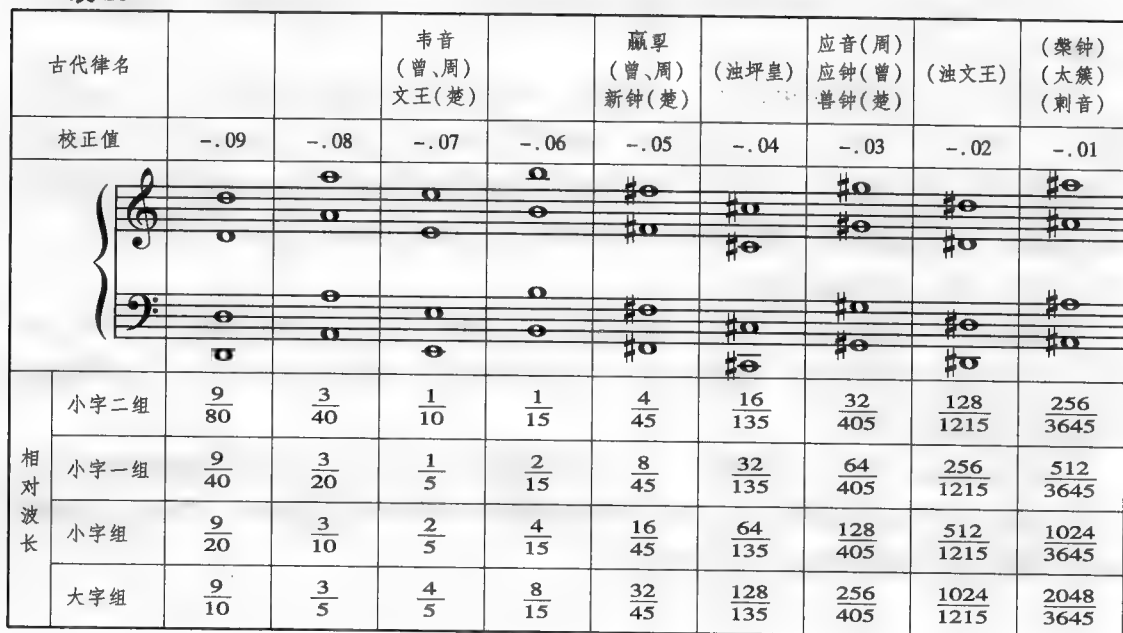 古代律名
韦音
(曾、周)
文王(楚)
(曾、周)
新钟(楚)
(浊坪皇)
应音(周)
应钟(曾)
兽钟(楚)
(浊文王)
(槃钟)
(太簇)
(剌音)
校正值 -.09 -.08 -.07 -.06 -.05 -.04 -.03 -.02 -.01
相对波长
小字二组 9/80 3/40 1/10 1/15 4/45 16/135 32/405 128/1215 256/3645
小字一组 9/40 3/20 1/5 2/15 8/45 32/135 64/405 256/1215 512/3645
小字组 9/20 3/10 2/5 4/15 16/45 64/135 128/405 512/1215 1024/3645
大字组 9/10 3/5 4/5 8/15 32/45 128/135 256/405 1024/1215 2048/3645